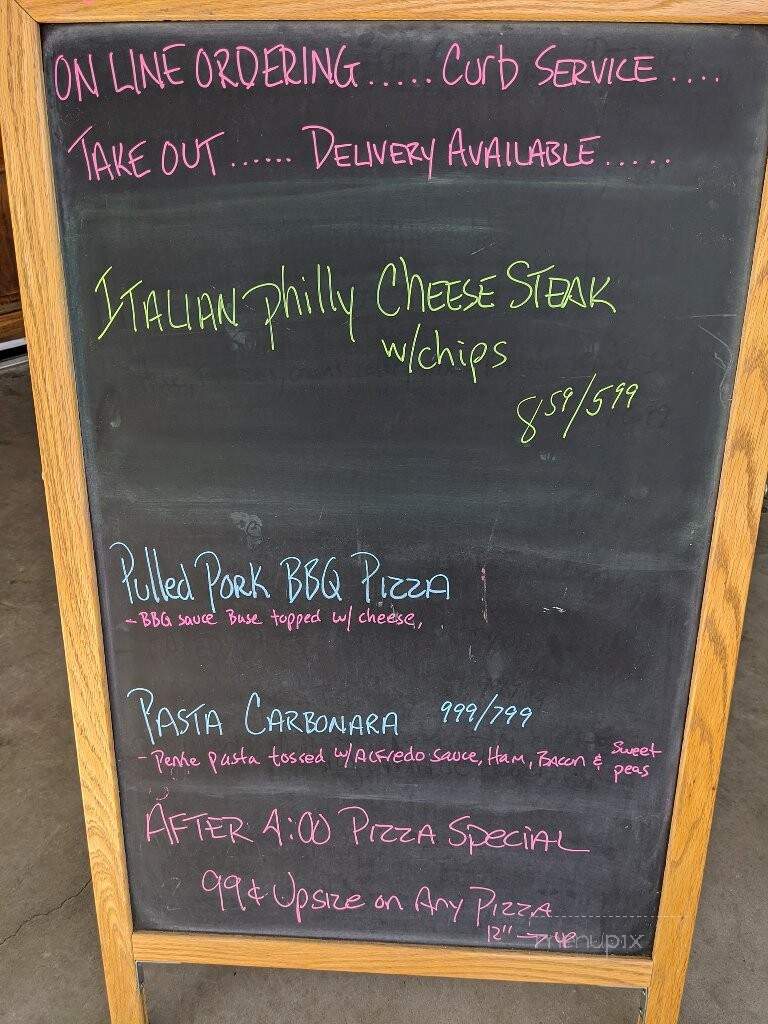 ON LINE ORDERING ..... Curb SERVICE ....
TAKE OUT ...... DELIVERY AVAILABLE .....
ITALIAN philly CHEESE STEAK
w/chips
8 59/5 99
Pulled Pork BBQ PIZZA
- BBQ sauce Base topped w/ cheese,
PASTA CARBONARA 999/799
- Penne pasta tossed w/ ALFredo sauce, Ham, BACon & Sweet peas
AFTER 4:00 PIZZA Special
99¢ Upsize on Any PIZZA
12" → up
menupix